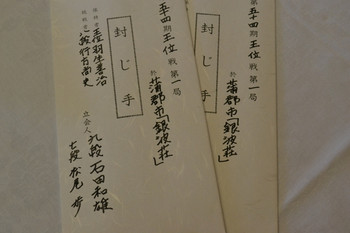 第五十四期王位戦第一局
於 蒲郡市「銀波荘」
封じ手
王位 羽生善治
行方尚史
立会人 九段 石田和雄
七段 松尾歩
第五十四期王位戦第一局
於 蒲郡市「銀波荘」
封じ手